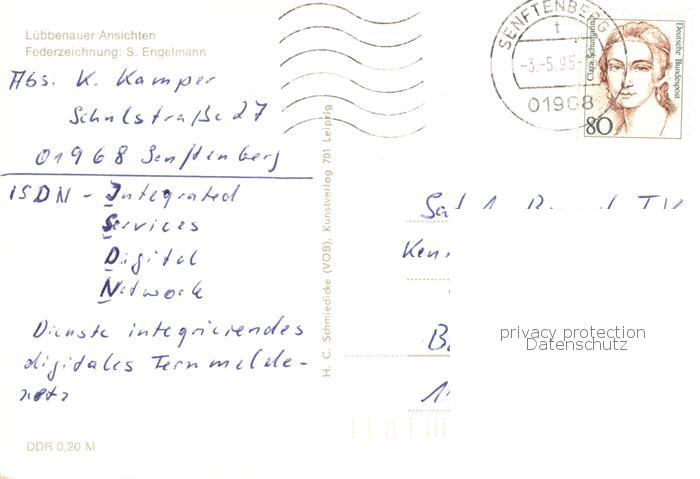 Lübbenauer Ansichten
Federzeichnung: S. Engelmann
Abs. K. Kamper
Schulstraße 27
01968 Senftenberg
ISDN - Integrated
Services
Digital
Network
Dienste integriciendes
digitales Fernmelde-
netz
DDR 0,20 M
H. C. Schmiedicke (VOB), Kunstverlag 701 Leipzig
SENFTENBERG
t
-3.-5.95-
01968
Clara Schumann
Deutsche Bundespost
80
Sat 1
privacy protection
Datenschutz